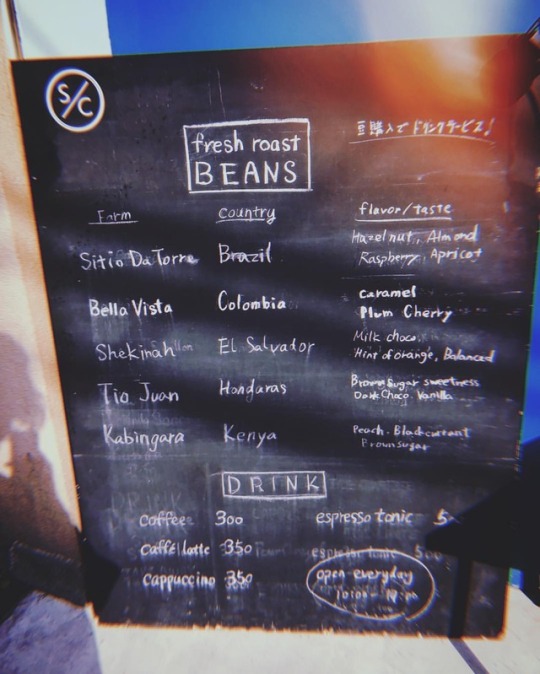 S/C
豆購入でドリンクサービス!
fresh roast
BEANS
Farm country flavor/taste
Sitio Da Torre Brazil Hazelnut, Almond
Raspberry, Apricot
Bella Vista Colombia caramel
Plum Cherry
Shekinah El Salvador Milk choco.
Hint of orange, Balanced
Tio Juan Honduras Brown Sugar sweetness
Dark Choco. Vanilla
Kabingara Kenya Peach. Blackcurrant
Brown sugar
DRINK
coffee 300 espresso tonic
caffé latte 350 espresso tonic
cappuccino 350 open everyday